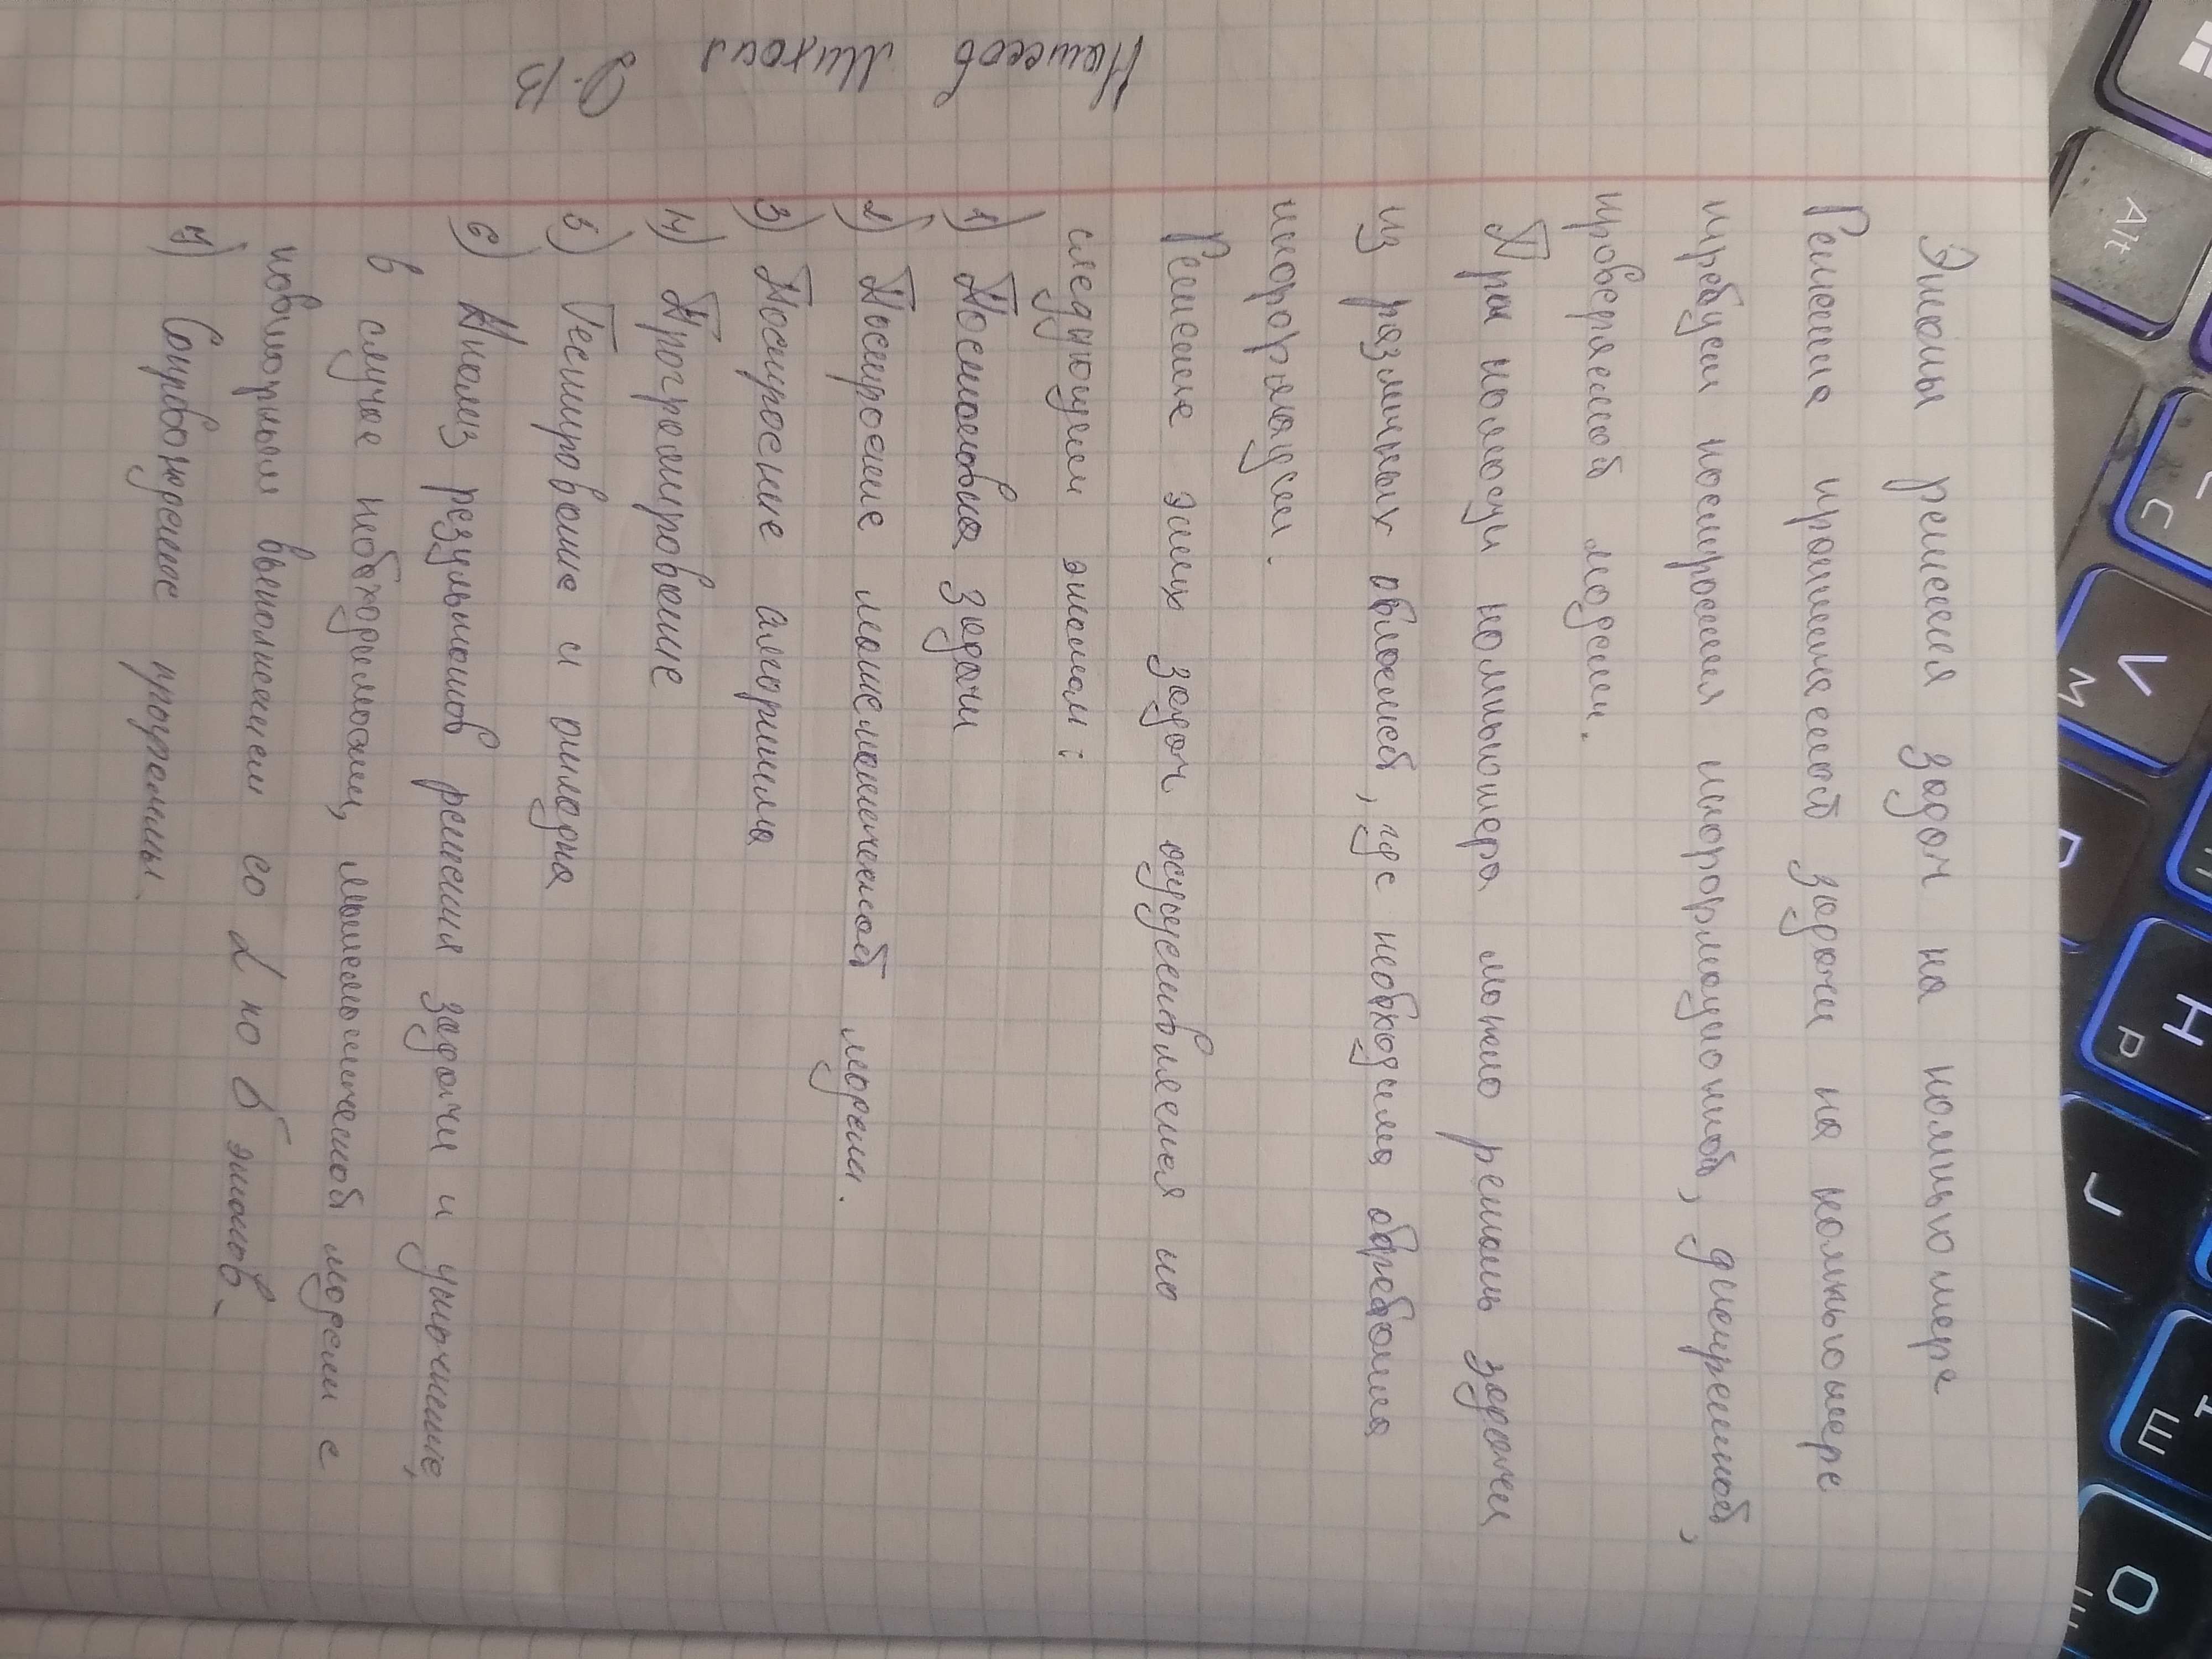 Этапы решения задач на компьютере
Решение прикладной задачи на компьютере
требует построения информационной, дискретной,
проверяемой модели.
При помощи компьютера можно решать задачи
из различных областей, где необходима обработка
информации.
Решение этих задач осуществляется по
следующим этапам:
1) Постановка задачи
2) Построение математической модели.
3) Построение алгоритма
4) Программирование
5) Тестирование и отладка
6) Анализ результатов решения задачи и уточнение,
в случае необходимости, математической модели с
повторным выполнением со 2 по 6 этапов.
7) Сопровождение программы.
Михаил
Alt
C
V
М
H
Р
J
Ш
O
Щ